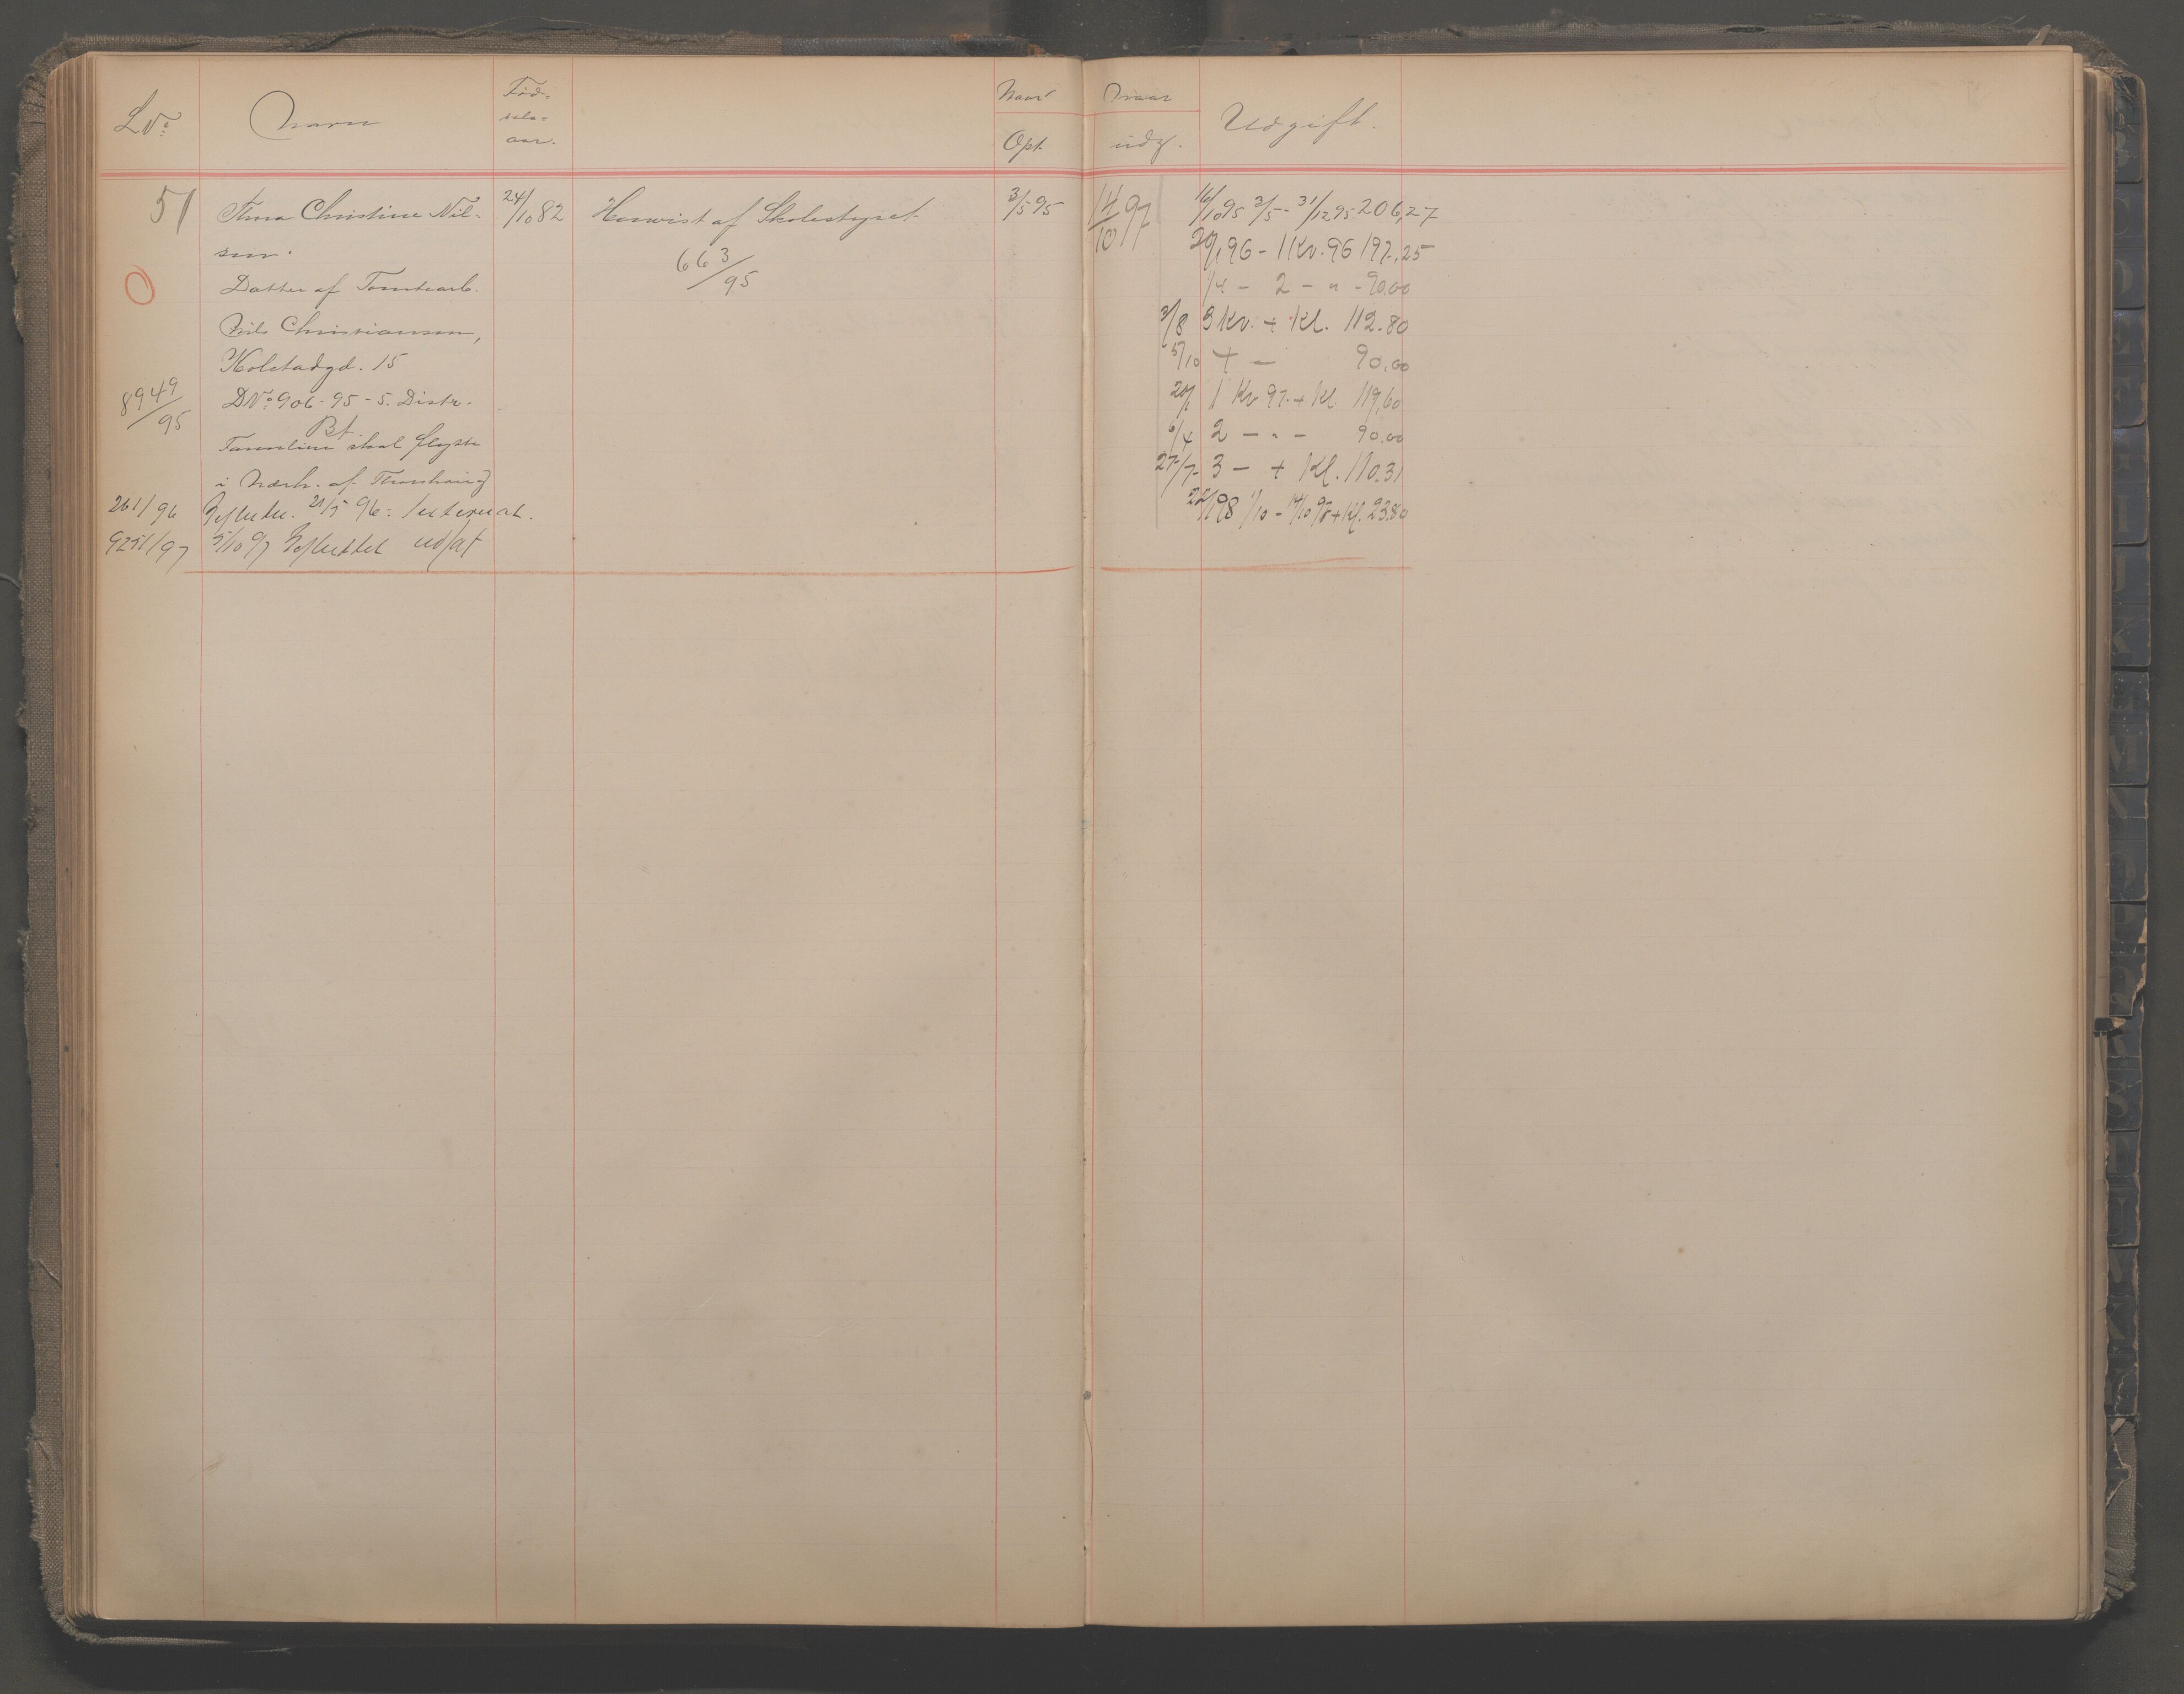 LNo.
Navn
Fød-
sels-
aar.
Naar
Opt.
Naar
udg.
Udgift.
51
Anna Christine Nil-
sen.
24/10 82
Henvist af Skolestyret
663/95
3/5 95
14/10 97
O
Datter af Tomtearb.
Nils Christiansen,
Kolstadgd. 15
8949/95
DNo. 906-95-5. Distr.
Bt.
Familien skal flytte
i Nærh. af
261/96
21/5 96
9251/97
5/10 97
16/10 95 3/5 - 31/12 95 206,27
29/1 96 - 1 Kv. 96 197,25
1/4 - 2 - " - 90.00
3/8 3 Kv. + Kl. 112.80
5/10 4 - 90.00
20/1 1 Kv 97 + Kl. 119,60
6/4 2 - " - 90.00
27/7 3 - + Kl. 110.31
22/1 98 1/10 - 14/10 98 + Kl. 23.80